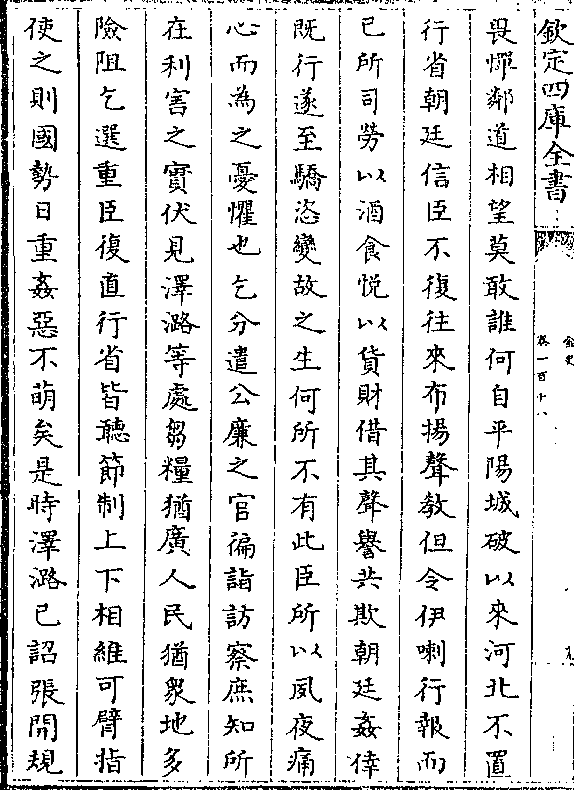 欽定四庫全書
金史
卷一百十八
畏憚鄰道相望莫敢誰何自平陽城破以來河北不置
行省朝廷信臣不復往來布揚聲教但令伊喇行報而
已所司勞以酒食悦以貨財借其聲譽共欺朝廷姦倖
既行遂至驕恣變故之生何所不有此臣所以夙夜痛
心而為之憂懼也乞分遣公廉之官徧詣訪察庶知所
在利害之實伏見澤潞等處芻糧猶廣人民猶衆地多
險阻乞選重臣復直行省皆聽節制上下相維可臂指
使之則國勢日重姦惡不萌矣是時澤潞已詔張開規